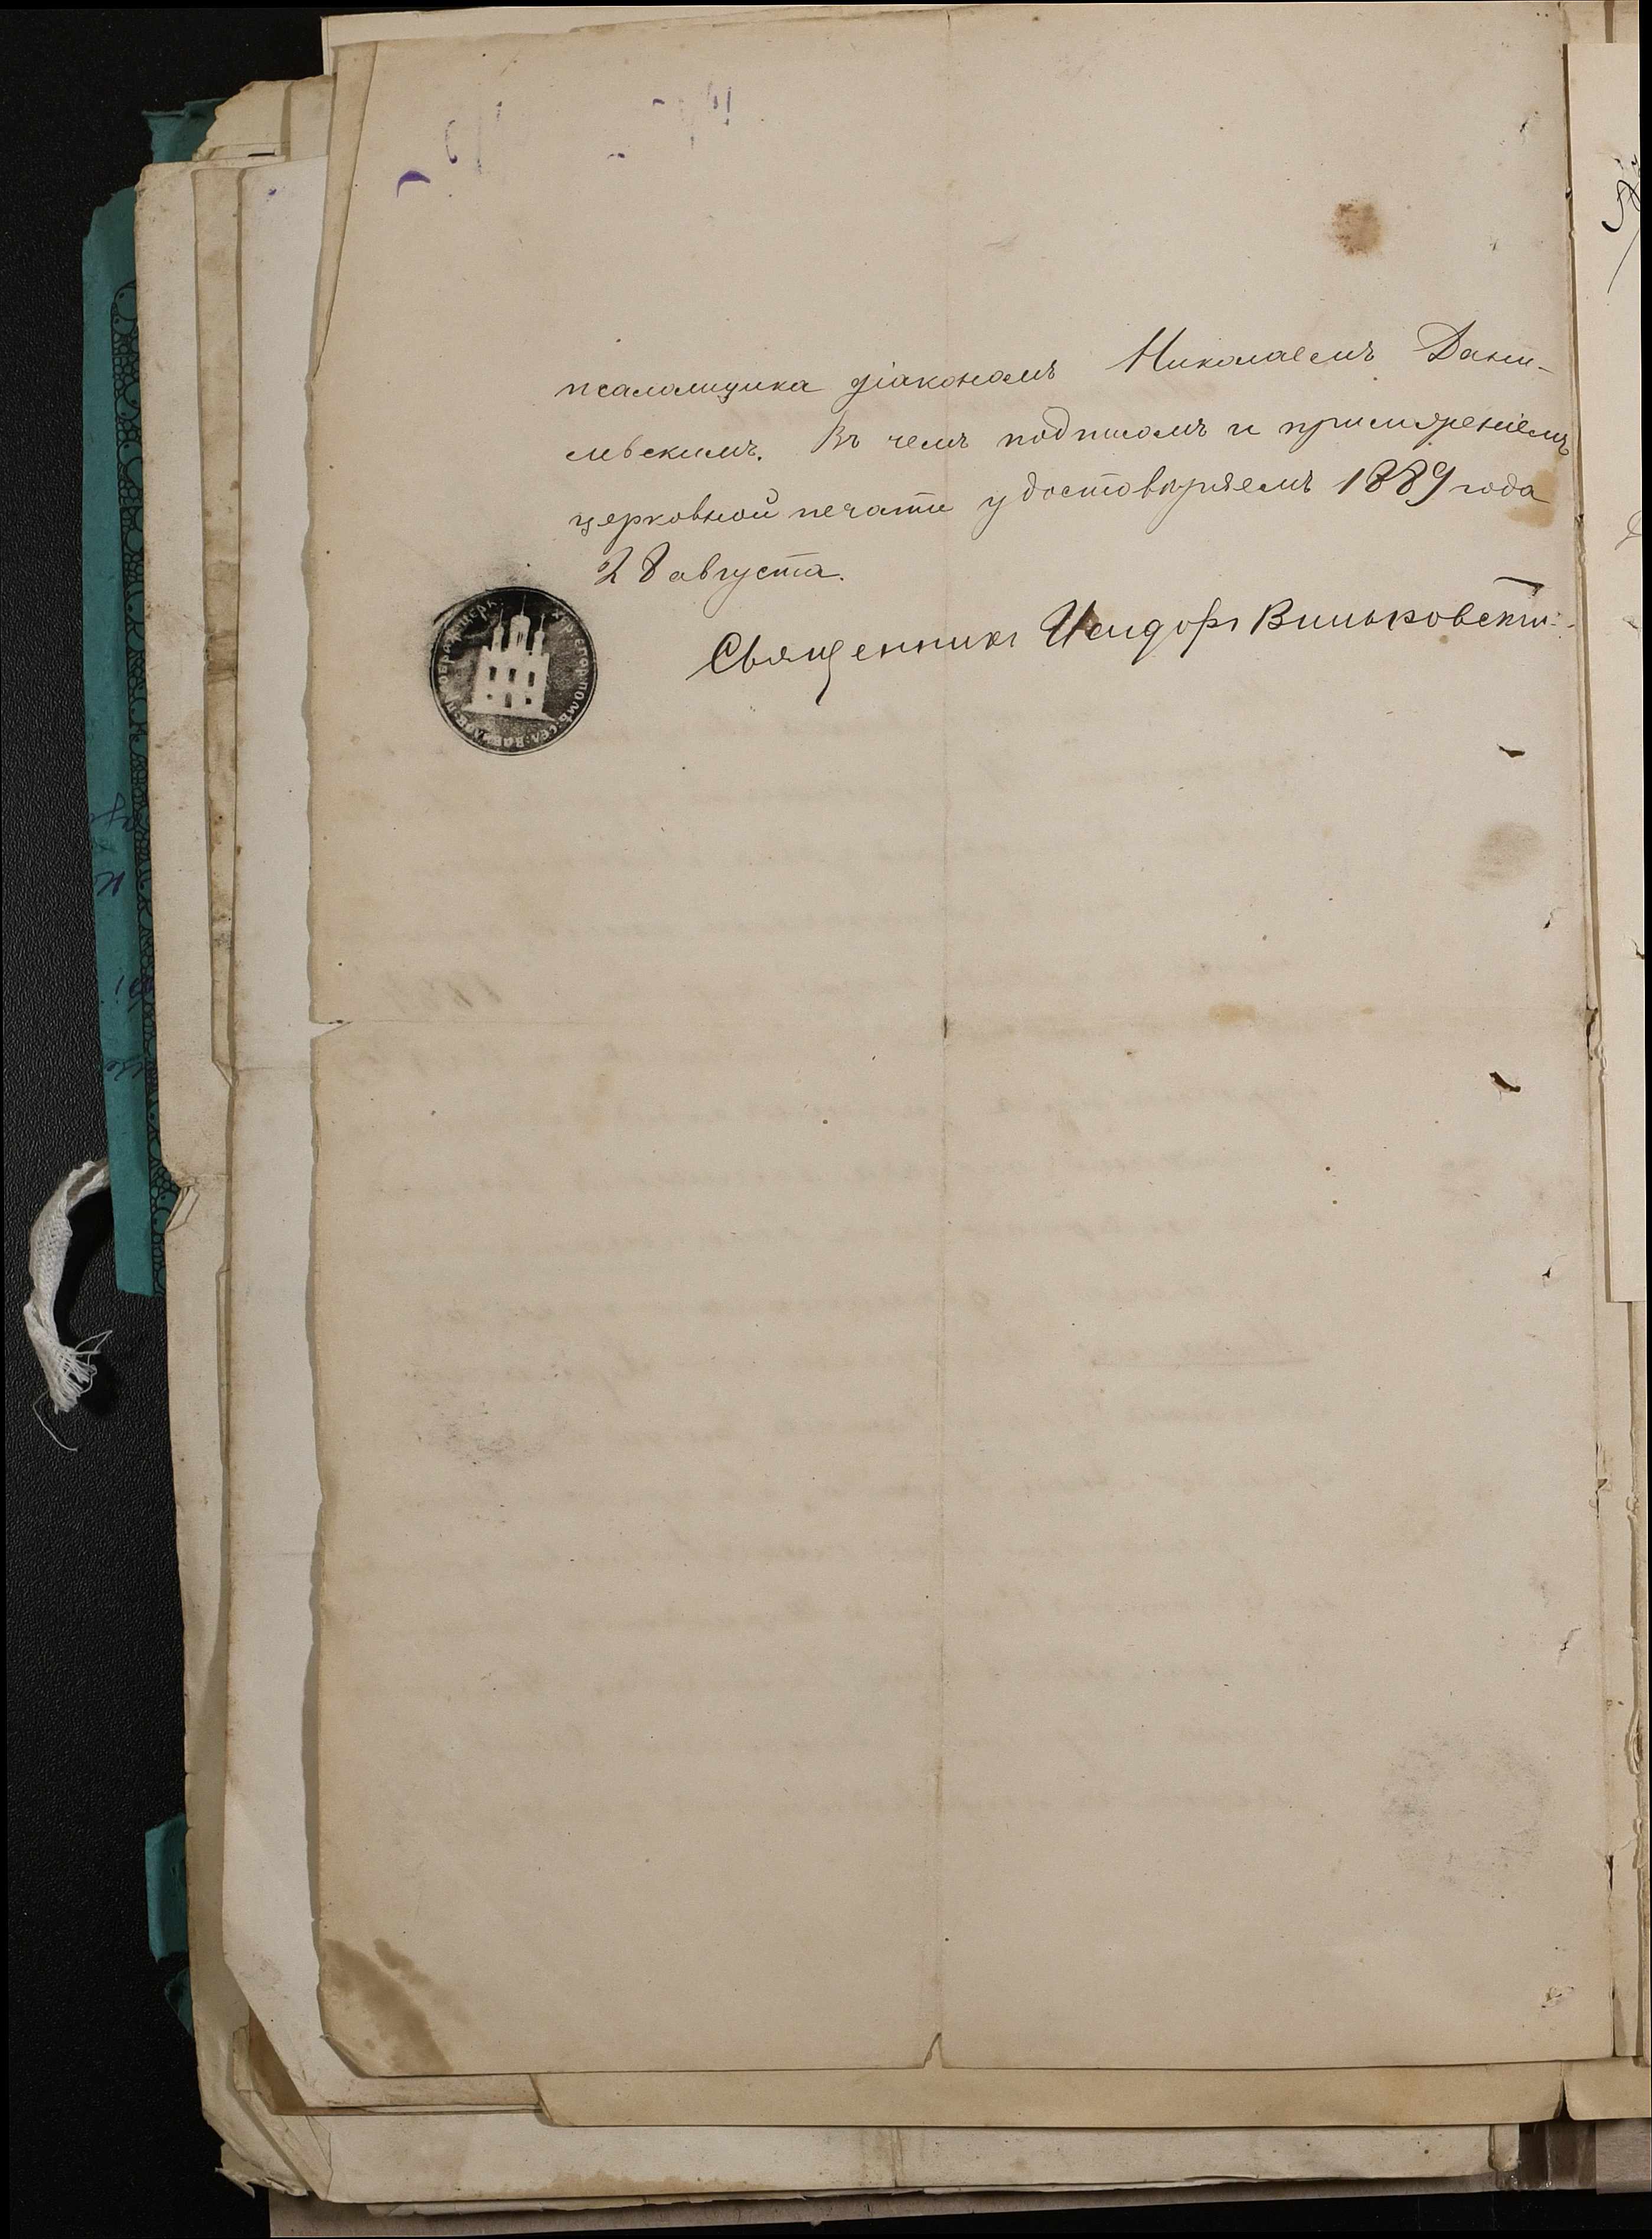 псаломщика діакономъ Николаемъ Дани-
левскимъ. Въ чемъ подписомъ и приложеніемъ
церковной печати удостовѣряемъ 1889 года
28 августа.
Священникъ Исидоръ Виньковскій